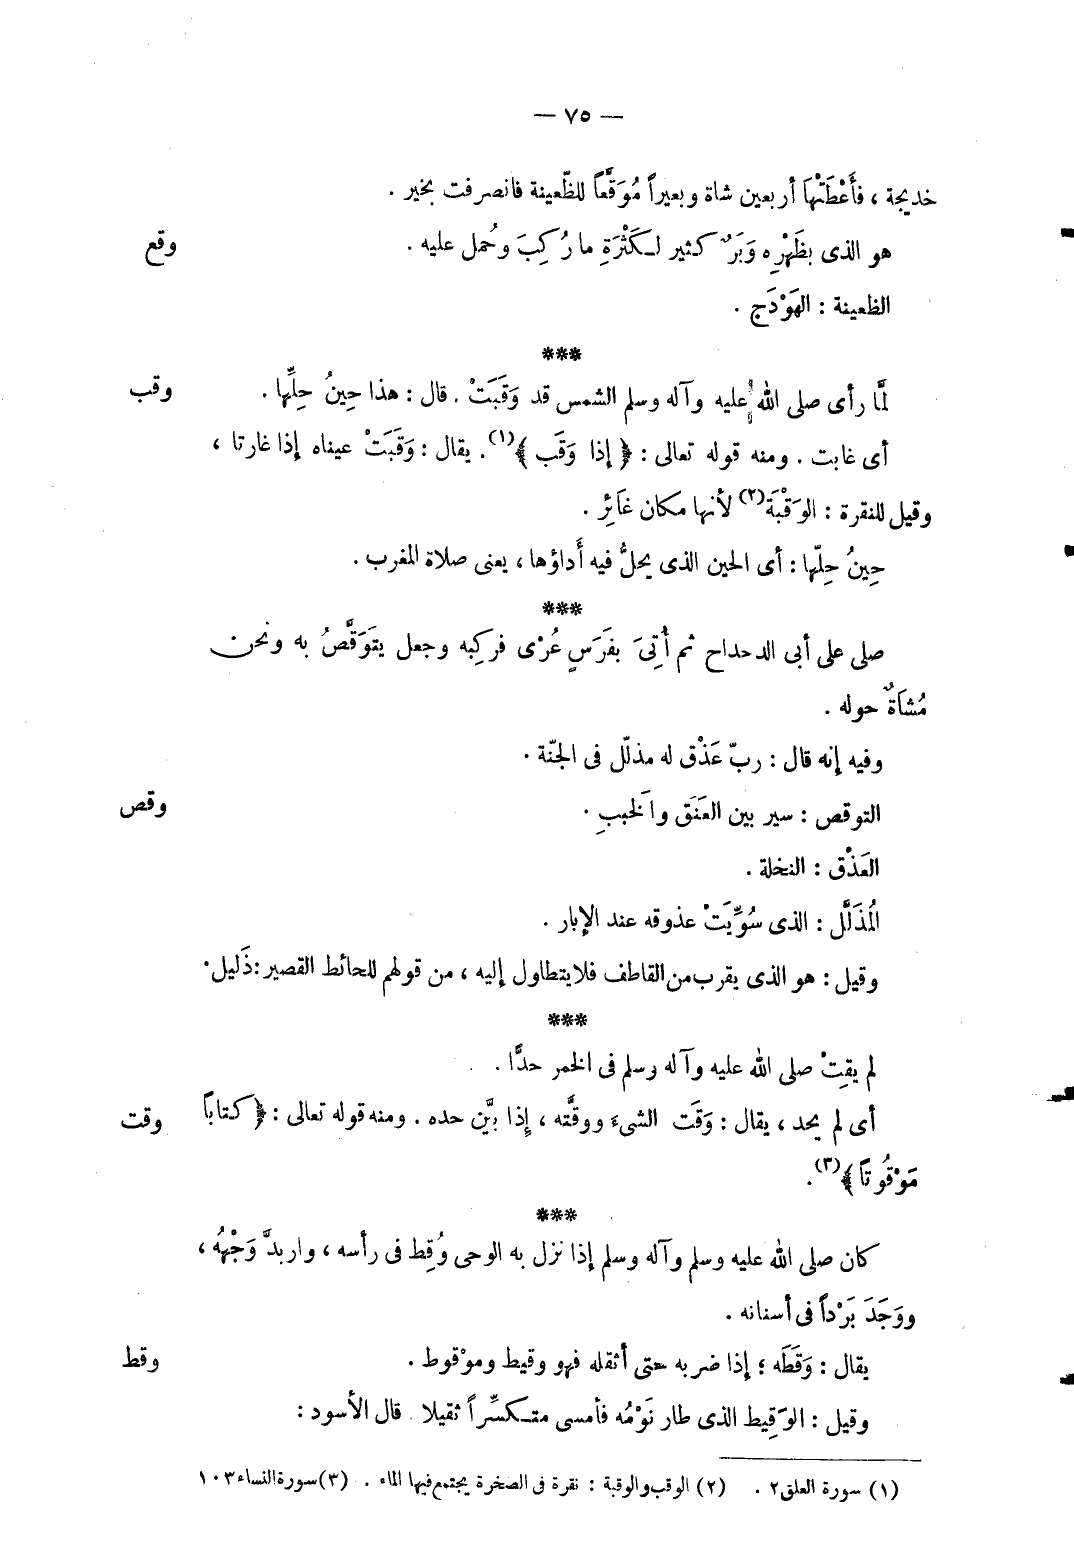 — ٧٥ —
خديجة ، فأَعْطَتْهَا أربعين شاة وبعيراً مُوَقَّعاً للظّعينة فانصرفت بخير .
هو الذى بظَهْرِه وَبَرٌ كثير لكَثْرَةِ ما رُكِبَ وحُمل عليه .
وقع
الظعينة : الهَوْدَج .
***
لمَّا رأى صلى الله عليه وآله وسلم الشمس قد وَقَبَتْ . قال : هذا حِينُ حِلِّها .
وقب
أى غابت . ومنه قوله تعالى : ﴿ إذا وَقَب ﴾(١). يقال : وَقَبَتْ عيناه إذا غارتا ،
وقيل للنقرة : الوَقْبَة(٢) لأنها مكان غَائِر .
حِينُ حِلّها : أى الحين الذى يحلُّ فيه أَداؤها ، يعنى صلاة المغرب .
***
صلى على أبى الدحداح ثم أُتِىَ بفَرَسٍ عُرْى فركِبه وجعل يتَوَقَّصُ به ونحن
مُشاَةٌ حوله .
وفيه إنه قال : ربّ عَذْق له مذلّل فى الجنّة .
التوقص : سير بين العَنَق والَخببِ .
وقص
العَذْق : النخلة .
المُذَلَّل : الذى سُوِّيَتْ عذوقه عند الإبار .
وقيل : هو الذى يقرب من القاطف فلا يتطاول إليه ، من قولهم للحائط القصير : ذَليل .
***
لم يقِتْ صلى الله عليه وآله وسلم فى الخمر حدًّا .
أى لم يحد ، يقال : وَقَت الشىءَ ووقَّته ، إِذا بيَّن حده . ومنه قوله تعالى : ﴿ كتاباً
وقت
مَوْقُوتاً ﴾(٣).
***
كان صلى الله عليه وسلم وآله وسلم إذا نزل به الوحى وُقِط فى رأسه ، واربدَّ وَجْهُه ،
ووَجَدَ بَرْداً فى أسنانه .
يقال : وَقَطَه ؛ إذا ضربه حتى أثقله فهو وقيط وموْقوط .
وقط
وقيل : الوَقِيط الذى طار نَوْمُه فأمسى متكسِّراً ثقيلا . قال الأسود :
(١) سورة العلق ٢ . (٢) الوقب والوقبة : نقرة فى الصخرة يجتمع فيها الماء . (٣) سورة النساء ١٠٣